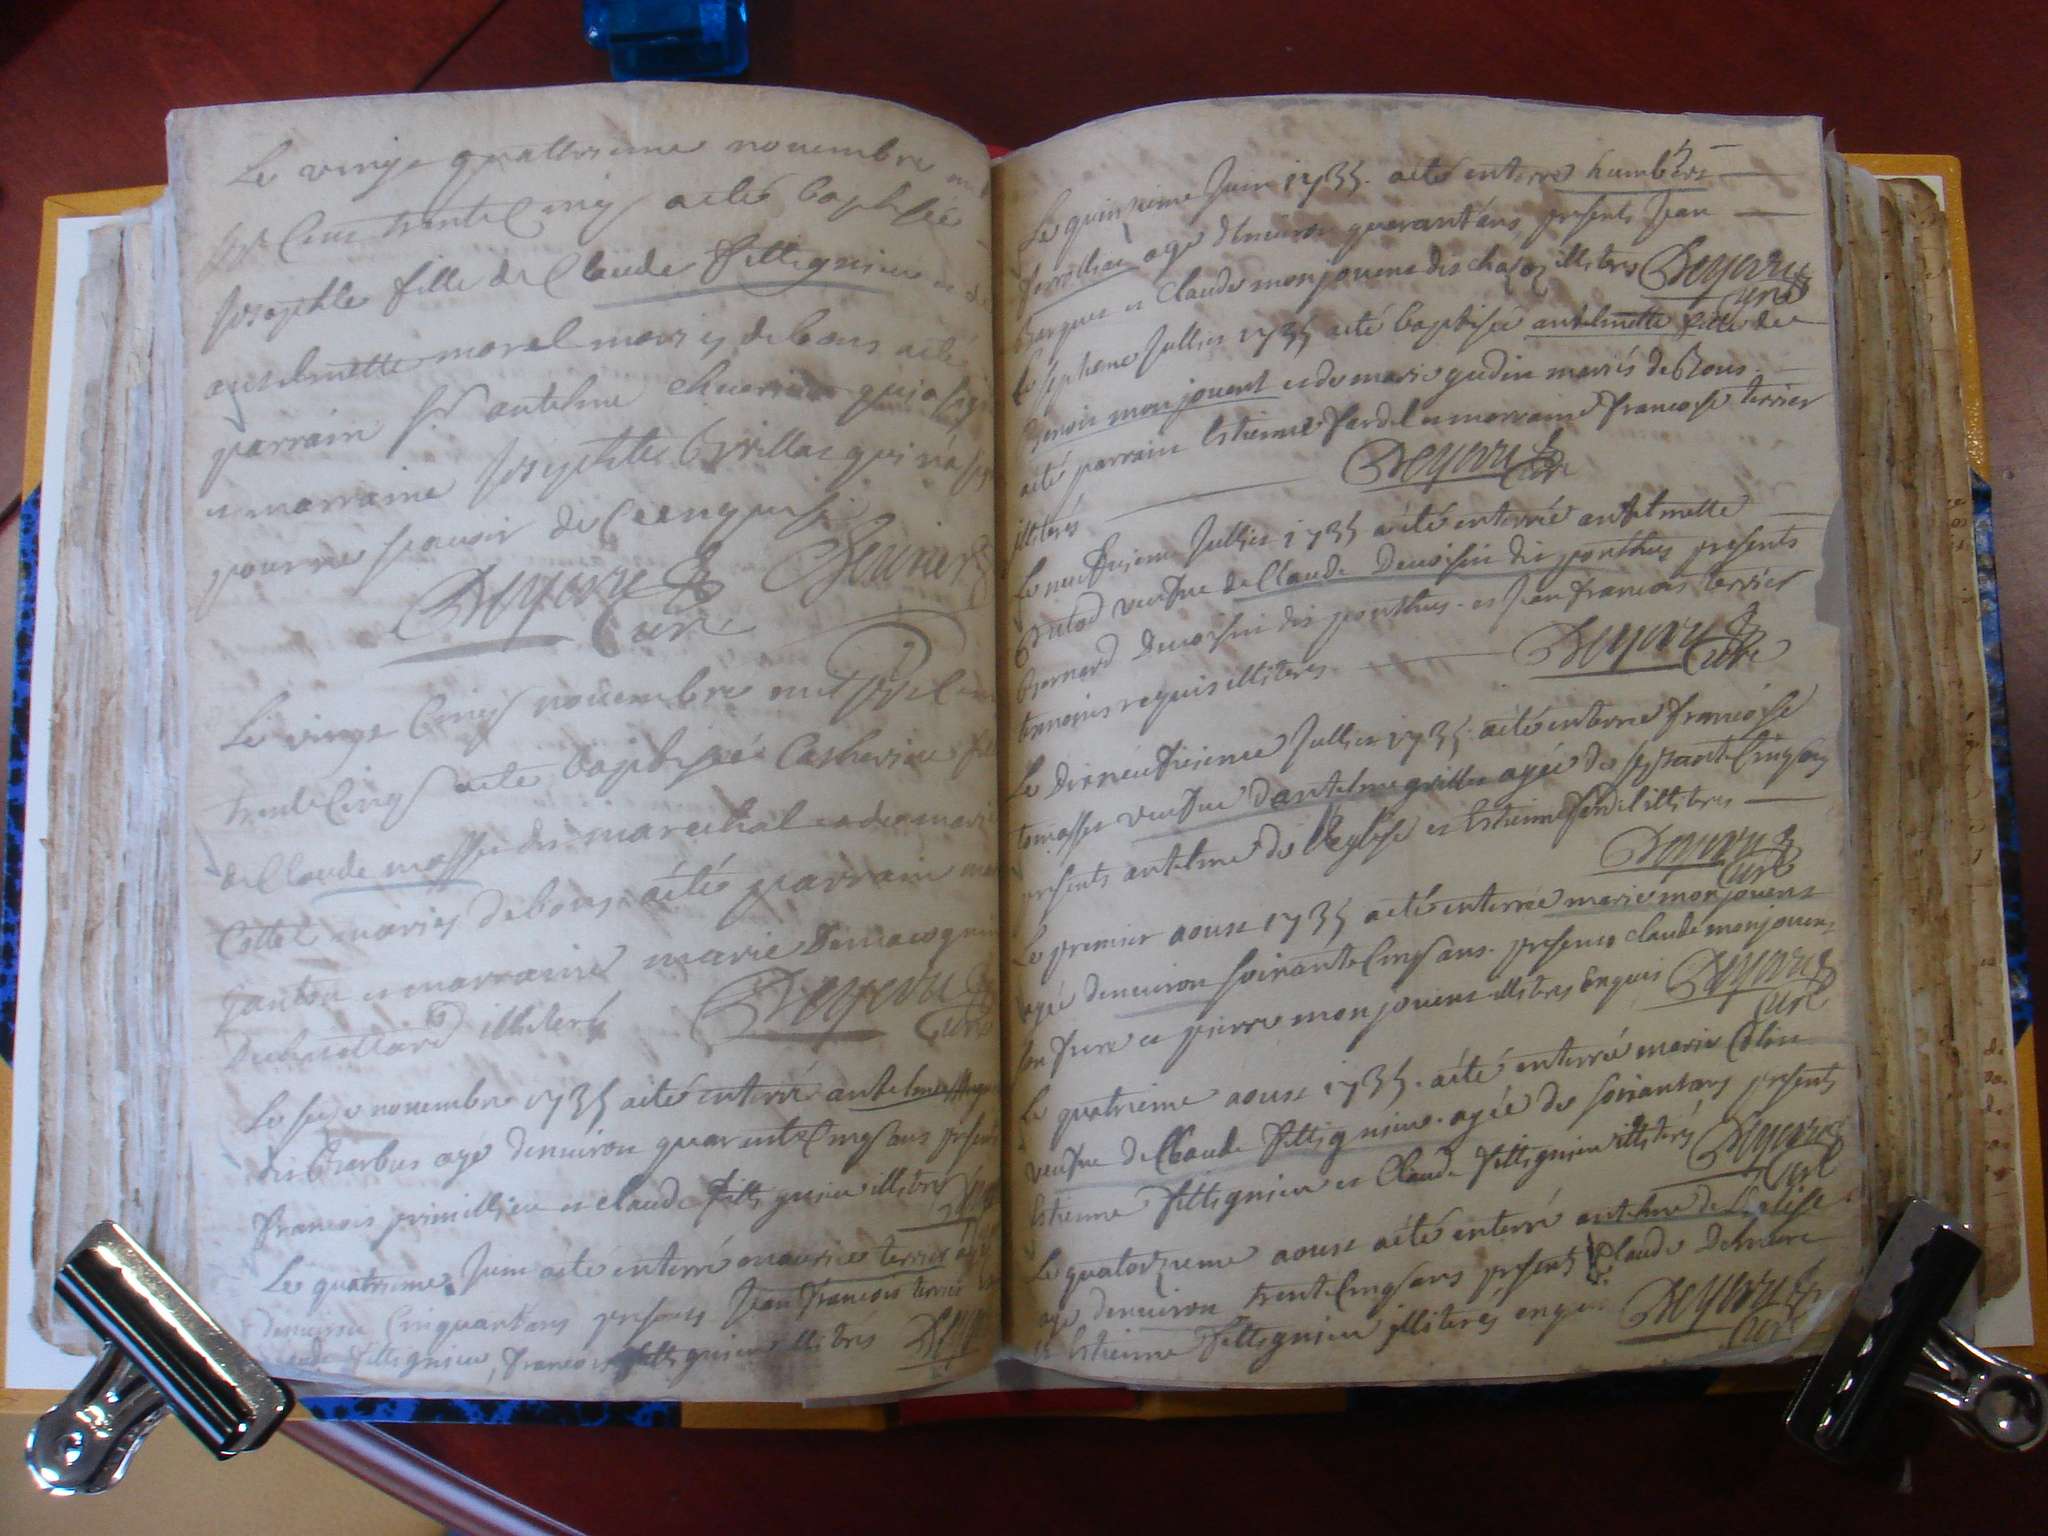 Le vingt quattrieme novembre mil
sept Cent trente Cinq aeté baptisée
Josephte fille de Claude fittignieu et de
antelmette morel mariez de bons aeté
parrain sr antelme Chevrier qui a signé
et marraine Josephte Brillat qui n'a signé
pour ne scavoir de ce enquise
Deyevre Curé Chevrier
Le vingt Cinq novembre mil sept Cent
trente Cinq aeté baptisée Catherine fille
de Claude masse dit marechal et de marie
Cottel mariez de bons aeté parrain
Janton et marraine marie
illiterés Deyevre Curé
Le novembre 1735 aeté enterré antelme
dit Barbus agé denviron quarante Cinq ans présents
francois primillieu et claude fittignieu illiterés
Le quatrieme Juin aeté enterré maurice terrier agé
denviron Cinquantans présents Jean francois terrier
Claude fittignieu, francois fittignieu illiterés
Le quinzieme Juin 1735. aeté enterré humbert
agé denviron quarant'ans présents Jean
et Claude monjouent dit chapoz illiterés Deyevre Curé
Le septieme Jullies 1735 aeté baptisée antelmette fille de
Benoit monjouent et de marie gudin mariés de Bons.
aeté parrain Estienne fardel et marraine francoise terrier
illiterés Deyevre Curé
Le neufvieme Jullies 1735 aeté enterrée antelmette
veufve de Claude Devoisin dit ponthus présents
Bernard Devoisin dit ponthus et Jean francois terrier
temoins requis illiterés Deyevre Curé
Le Dixneufvieme Jullies 1735 aeté enterrée francoise
tomasset veufve d'antelme grillet agée de septante Cinq ans
présents antelme de l'Eglise et Estienne fardel illiterés
Deyevre Curé
Le premier aoust 1735 aeté enterrée marie monjouent
agée denviron soixante Cinq ans. présents claude monjouent
son frere et pierre monjouent illiterés Enquis Deyevre Curé
Le quatrieme aoust 1735. aeté enterrée marie
veufve de Claude fittignieu. agée de soixantans présents
Estienne fittignieu et Claude fittignieu illiterés Deyevre Curé
Le quatorzieme aoust aeté enterré antelme de L'eglise
agé denviron trente Cinq ans présents Claude
et Estienne fittignieu illiterés enquis Deyevre Curé